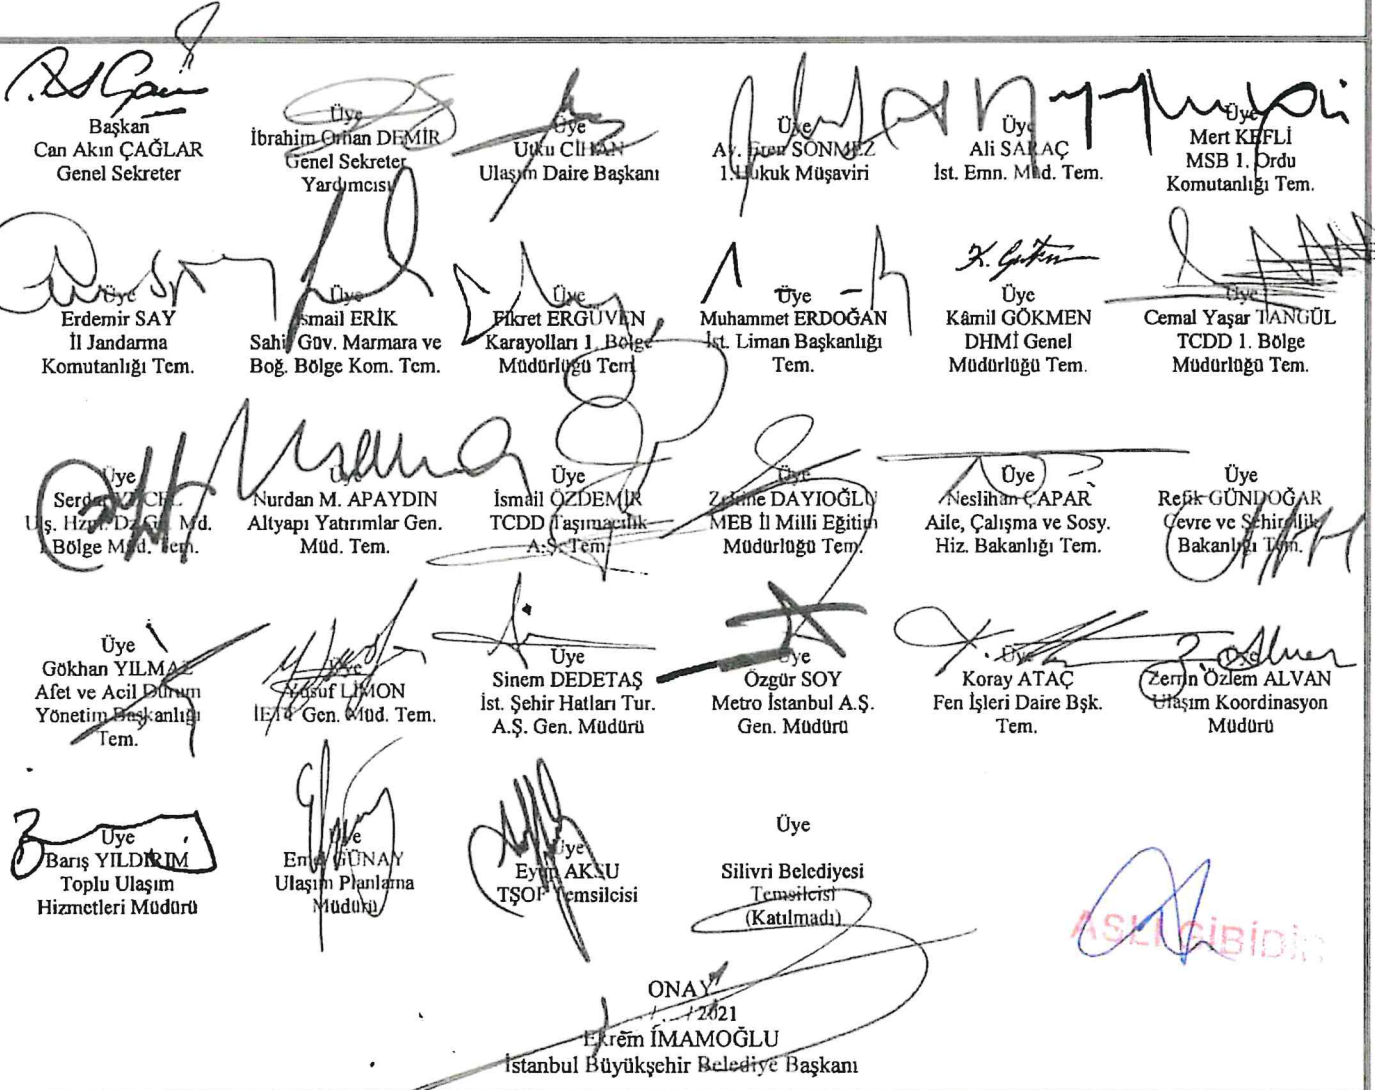 Başkan
Can Akın ÇAĞLAR
Genel Sekreter
Üye
İbrahim Orhan DEMİR
Genel Sekreter
Yardımcısı
Üye
Utku CİHAN
Ulaşım Daire Başkanı
Üye
Av. Eren SÖNMEZ
1.Hukuk Müşaviri
Üye
Ali SARAÇ
İst. Emn. Müd. Tem.
Üye
Mert KEFLİ
MSB 1. Ordu
Komutanlığı Tem.
Üye
Erdemir SAY
İl Jandarma
Komutanlığı Tem.
Üye
İsmail ERİK
Sahil Güv. Marmara ve
Boğ. Bölge Kom. Tem.
Üye
Fikret ERGÜVEN
Karayolları 1. Bölge
Müdürlüğü Tem.
Üye
Muhammet ERDOĞAN
İst. Liman Başkanlığı
Tem.
K. Gökmen
Üye
Kâmil GÖKMEN
DHMİ Genel
Müdürlüğü Tem.
Üye
Cemal Yaşar TANGÜL
TCDD 1. Bölge
Müdürlüğü Tem.
Üye
Serdar
Ulş. Hzm. Dz. Gn. Md.
Bölge Müd. Tem.
Üye
Nurdan M. APAYDIN
Altyapı Yatırımlar Gen.
Müd. Tem.
Üye
İsmail ÖZDEMİR
TCDD Taşımacılık
A.Ş. Tem.
Üye
DAYIOĞLU
MEB İl Milli Eğitim
Müdürlüğü Tem.
Üye
Neslihan ÇAPAR
Aile, Çalışma ve Sosy.
Hiz. Bakanlığı Tem.
Üye
Refik GÜNDOĞAR
Çevre ve Şehircilik
Bakanlığı Tem.
Üye
Gökhan YILMAZ
Afet ve Acil Durum
Yönetim Başkanlığı
Tem.
Üye
Yusuf LİMON
İETT Gen. Müd. Tem.
Üye
Sinem DEDETAŞ
İst. Şehir Hatları Tur.
A.Ş. Gen. Müdürü
Üye
Özgür SOY
Metro İstanbul A.Ş.
Gen. Müdürü
Üye
Koray ATAÇ
Fen İşleri Daire Bşk.
Tem.
Üye
Zerrin Özlem ALVAN
Ulaşım Koordinasyon
Müdürü
Üye
Barış YILDIRIM
Toplu Ulaşım
Hizmetleri Müdürü
Üye
GÜNAY
Ulaşım Planlama
Müdürü
Üye
Eyüp AKSU
TŞOF Temsilcisi
Üye
Silivri Belediyesi
Temsilcisi
(Katılmadı)
ASLI GİBİDİR
ONAY
.../.../2021
Ekrem İMAMOĞLU
İstanbul Büyükşehir Belediye Başkanı